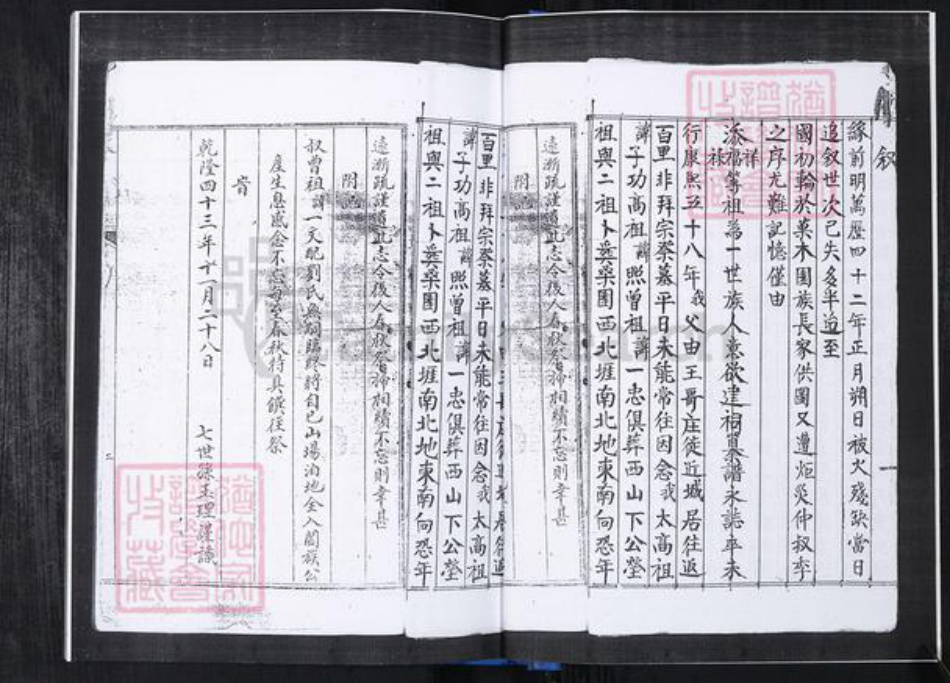 叙
緣前明萬歷四十二年正月朔日被火殘缺當日
追叙世次已失多半迨至
國初輪於菓木園族長家供圖又遭炬災仲叔季
之序尤難記憶僅由
祥
添福等祖為一世族人意欲建祠纂譜永誌卒未
祿
行康熙五十八年我父由王哥庄徙近城居往返
百里非拜宗祭墓平日未能常往因念我太高祖
諱子功高祖諱照曾祖諱一忠俱葬西山下公塋
祖與二祖卜葬桑園西北堐南北地東南向恐年
遠漸疏謹遺此志令後人春秋祭掃相續不忘則幸甚
附
百里非拜宗祭墓平日未能常往因念我太高祖
諱子功高祖諱照曾祖諱一忠俱葬西山下公塋
祖與二祖卜葬桑園西北堐南北地東南向恐年
遠漸疏謹遺此志令後人春秋祭掃相續不忘則幸甚
附
叔曾祖諱一文配劉氏無嗣臨終將自己山場泊地全入闔族公
產生息感念不忘每至春秋特具饌往祭
乾隆四十三年十一月二十八日 七世孫玉理謹識
一
二